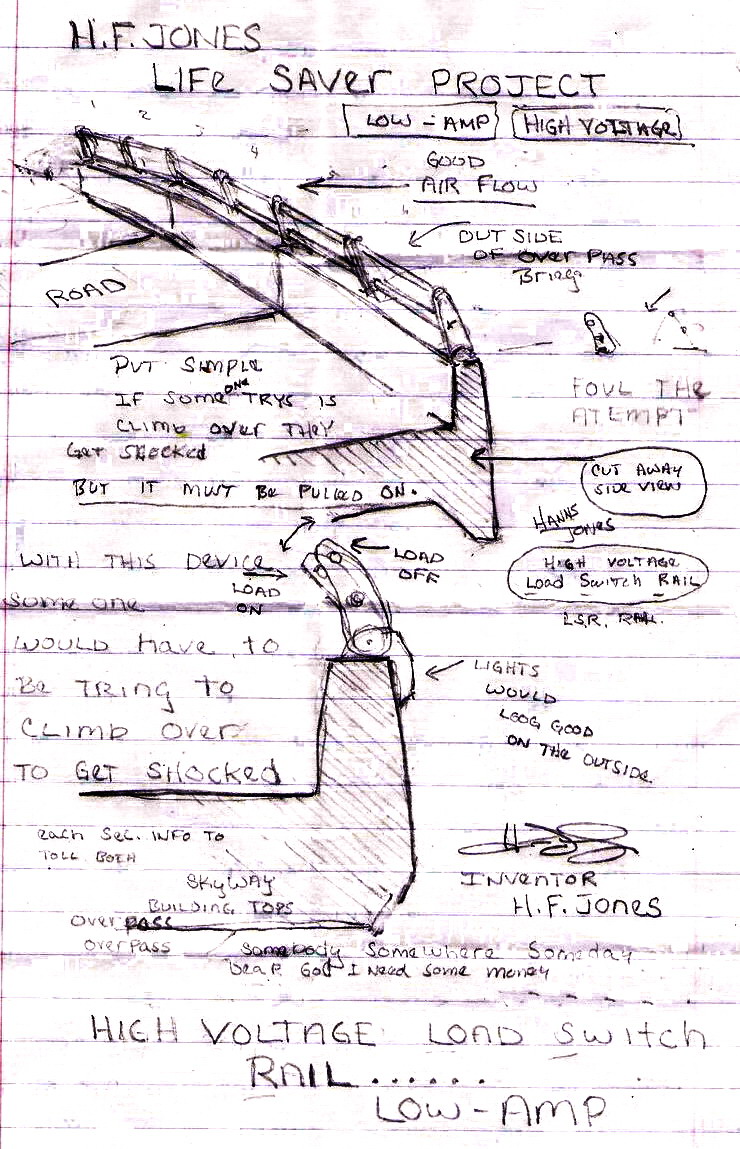 H.F. JONES
LIFE SAVER PROJECT
LOW-AMP HIGH VOLTAGE
1 2 3 4
GOOD
AIR FLOW
OUT SIDE
OF OVER PASS
Bring
ROAD
PUT SIMPLE
IF SOME ONE TRYS IS
CLIMB OVER THEY
Get SHOCKED
BUT IT MUST BE PULLED ON.
FOUL THE
ATEMPT
CUT AWAY
SIDE VIEW
HANNS
JONES
HIGH VOLTAGE
Load Switch RAIL
L.S.R. RAIL
LOAD
OFF
LOAD
ON
WITH THIS DEVICE
SOME ONE
WOULD have to
Be TRING TO
CLIMB OVER
TO GET SHOCKED
LIGHTS
WOULD
LOOG GOOD
ON THE OUTSIDE
each Sec. INFO TO
TOLL BOTH
SKYWAY
BUILDING TOPS
OVERPASS
overpass
INVENTOR
H.F. JONES
Somebody Somewhere Someday
Dear God I Need Some money
HIGH VOLTAGE LOAD Switch
RAIL......
LOW-AMP